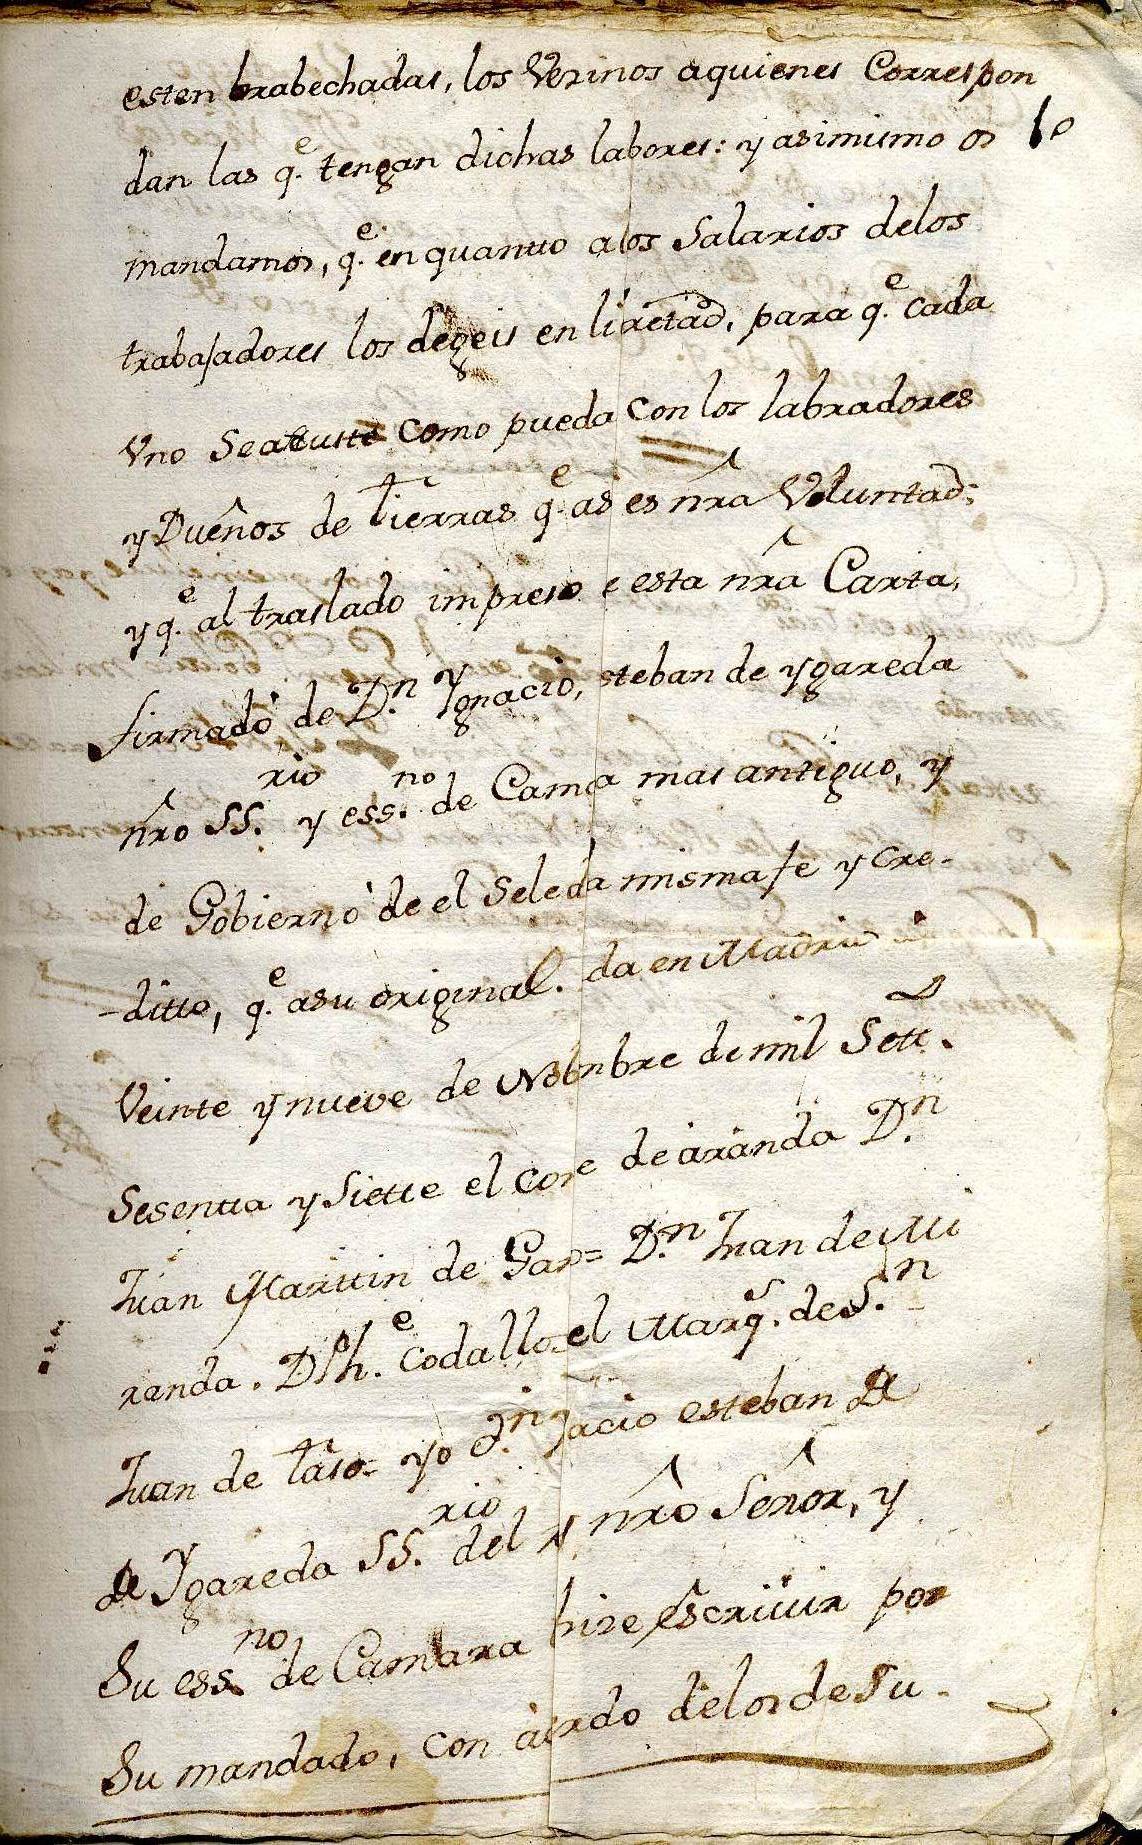 esten brabechadas, los Vezinos aquienes Correspon
10
dan las q.e tengan dichas labores: y asimismo os
mandamos, q.e en quantto alos Salarios delos
trabajadores los degeis en liretad, para q.e cada
Vno Seajuste como pueda con los labradores
y Dueños de tierras q.e as es nr̃a Voluntad;
y q.e al traslado impreso e esta nr̃a Carta,
firmado de D.n Ygnacio, steban de ygareda
nr̃o SS.rio y ess.no de Cama mas antiguo, y
de Gobierno de el Seleda misma fe y cre-
-ditto, q.e asu original. da en Madrid a
Veinte y nueve de Nobnbre de mil Sett.
Sesentta y Siette el Cone de aranda D.n
Juan Marttin de Gar= D.n Juan de Mi
randa. D Ph.e Codallos el Marq.s de S.n
Juan de taso= yo d.n ynacio esteban de
de Ygareda SS.rio del nr̃o Señor, y
Su ess.no de Camara hize escriuir por
Su mandado, con acrdo delos de Su-